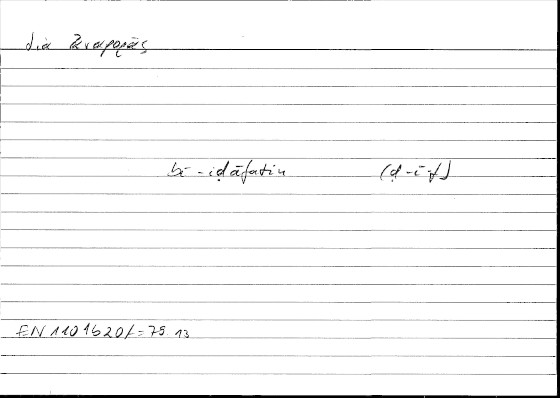 διὰ ἀναφορᾶς
bi-iḍāfatin (ḍ-ī-f)
EN 1101b20 / = 75 13